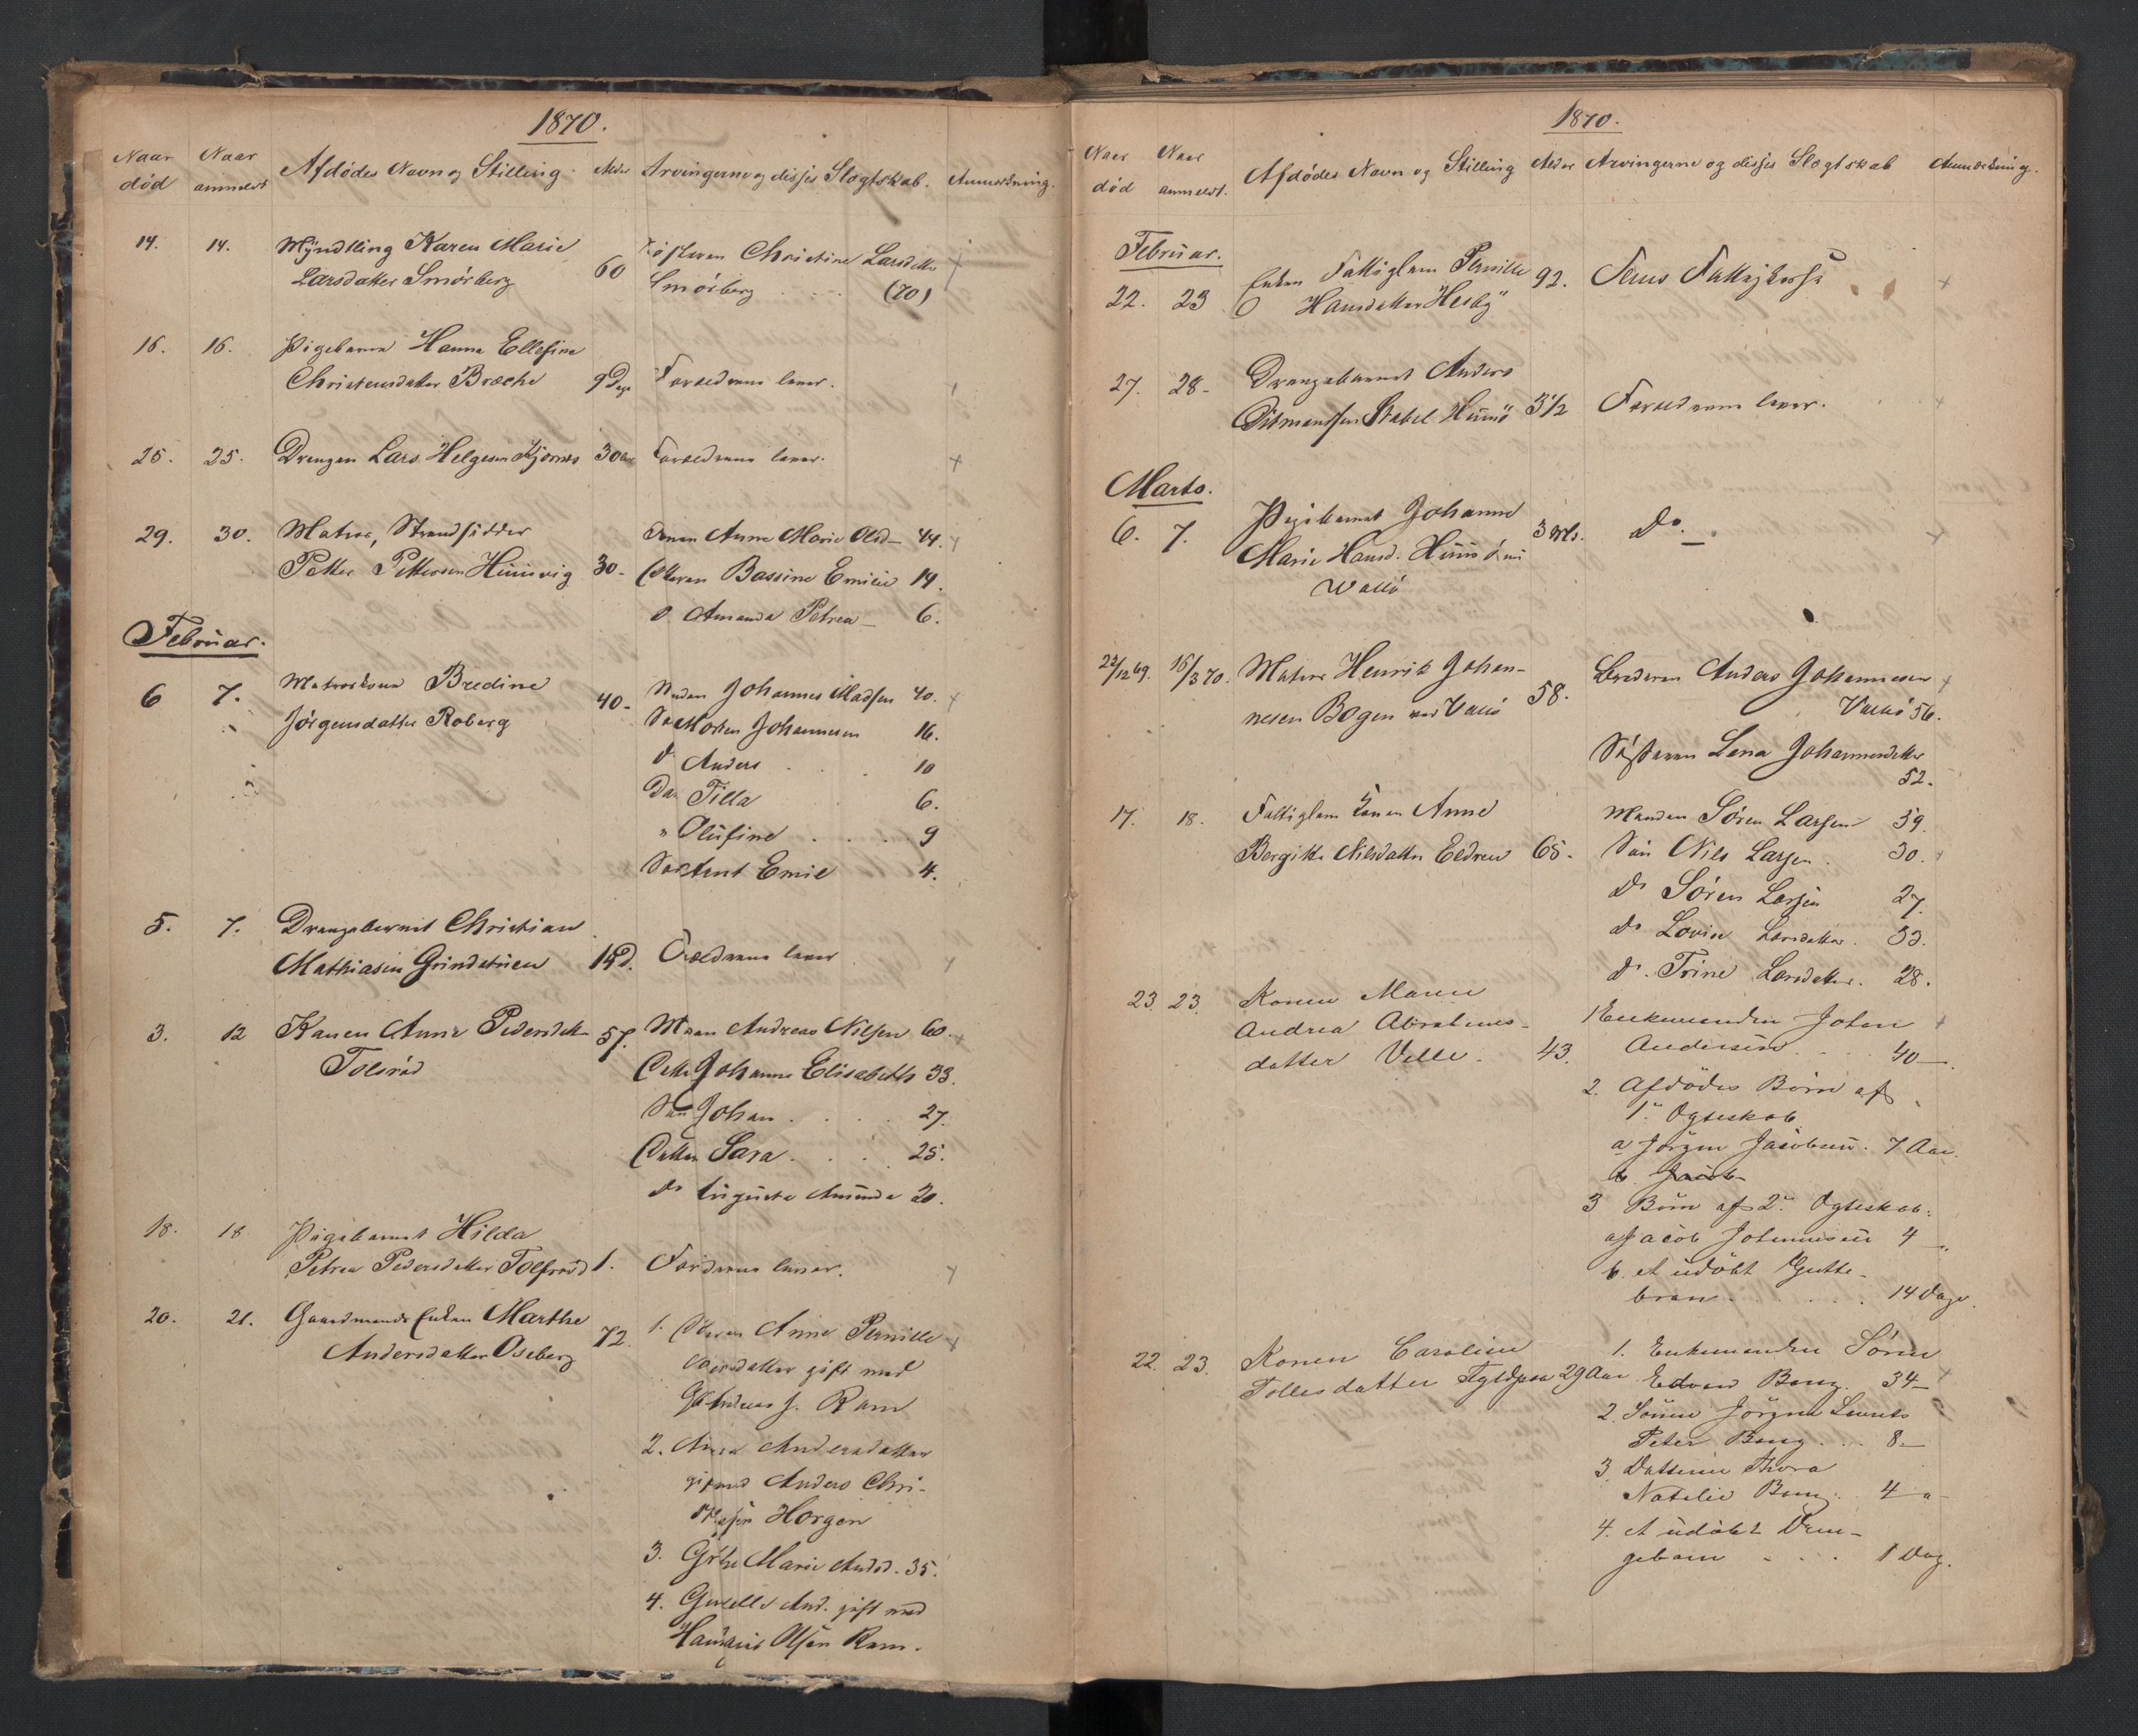 1870.
Naar død Naar anmeldt Afdødes Navn og Stilling. Alder Arvingerne og disses Slægtskab. Anmærkning.
14. 14. Myndling Karen Marie
Larsdatter Smörberg 60
Søsteren Christine Larsdatter
Smörberg . . . . (70)
16. 16. Pigebarn Hanna Ellefine
Christensdatter Bræche 9 Dage Forældrene lever.
25. 25. Drengen Lars Helgesen Kjørnes 30 Forældrene lever.
29. 30. Matros, Strandsidder
Petter Pettersen Hüüsvig 30-
Konen Anne Marie Olsd- 44.
Datteren Bassine Emilie 14.
Do Amanda Petrea- 6.
Februar.
6 7. Matroskone Bredine
Jörgensdatter Roberg 40-
Manden Johannes Madsen 40.
Søn Morten Johannesen 16.
do Anders . . . 10
Dat. Tilla 6.
" Olüfine . . . . 9
Søn Ant Emil 4.
5. 7. Drengebarnet Christian
Mathiasen Grindstuen 14 D. Forældrene lever
3. 12 Konen Anne Pedersdatter
Tolsröd 57.
Man Andreas Nilsen 60.
Datter Johanne Elisabeth 33.
Søn Johan . . . . 27.
Datter Sara . . . . 25.
do Augusta Amünda 20.
18. 18 Pigebarnet Hilda
Petrea Pedersdatter Tolfsröd 1. Forældrene lever.
20. 21. Gaardmands Enken Marthe
Andersdatter Oseberg 72.
1. Datteren Anne Pernille
Andersdatter gift med
Andreas J. Ram
2. Andersdatter
gift med Anders Chri-
stensen Horgen
3. Marie Andsd. 35.
4. And. gift med
Olsen Ram.
1870.
Naar død Naar anmeldt. Afdødes Navn og Stilling Alder Arvingerne og disses Slægtskab Anmærkning.
Februar.
22. 23 Enken Fattiglem Pernille
Hansdatter Hesby 92. Tems Fattigkasse
27. 28- Drengebarnet Anders
Ditmanssen Stabel Hüüsö 3 1/2 Forældrene lever.
Marts.
6. 7. Pigebarnet Johanne
Marie Hansd. Hüüsö
Vallö 3 Do.
22/12 69. 16/3 70. Matros Henrik Johan-
nesen Bogen ved Vallö 58.
Broderen Anders Johannesen
Vallö 56.
Søsteren Lena Johannesdatter
52.
17. 18. Fattiglem Konen Anne
Bergitte Nilsdatter Eldren 65-
Manden Sören Larsen 39.
Søn Nils Larsen . 30.
do Sören Larsen 27.
do Lovise Larsdatter. 33.
do. Trine Larsdatter. 28.
23. 23. Konen Maren
Andrea Abrahams-
datter Velle. 43.
1 Enkemanden Johan
Andersen . . . 40-
2. Afdödes Börn af
1ste Ægteskab
a Jörgen Jacobsen. 7 Aar.
b Jacob-
3 Börn af 2det Ægteskab:
a Jacob Johannesen 4 "
b. et udöbt Gutte-
barn . . . . 14 Dage.
22. 23. Konen Caroline
Tollesdatter 29 Aar
1. Enkemanden Sören
Edvard Bang. 34-
2. Sönnen Jörgen Lauritz
Peter Bang . . 8-
3. Datteren Thora
Natalie Bang. 4 -
4. et udöbt Dren-
gebarn . . . 1 Dag.